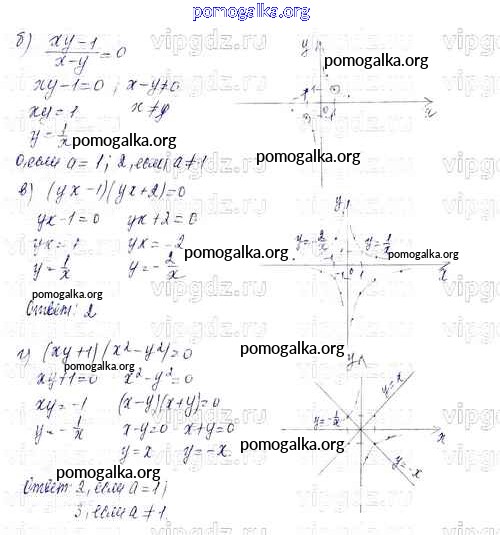 pomogalka.org
б) (xy-1)/(x-y) = 0
xy-1=0 ; x-y≠0
xy=1 x≠y
y = 1/x
0, если a=1; 2, если a≠1
в) (yx-1)(yx+2)=0
yx-1=0 yx+2=0
yx=1 yx=-2
y = 1/x y = -2/x
y = -2/x y = 1/x
Ответ: 2
г) (xy+1)(x²-y²)=0
xy+1=0 x²-y²=0
xy=-1 (x-y)(x+y)=0
y = -1/x x-y=0 x+y=0
y=x y=-x
y = -1/x y=x
y=-x
Ответ: 2, если a=1;
3, если a≠1
pomogalka.org
pomogalka.org
pomogalka.org
pomogalka.org
pomogalka.org
pomogalka.org
pomogalka.org
pomogalka.org
pomogalka.org
pomogalka.org
pomogalka.org
vipgdz.ru